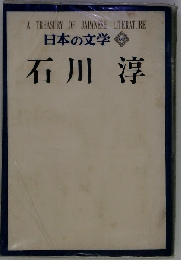 A TREASURY OF JAPANESE LITERATURE
日本の文学
石川 淳